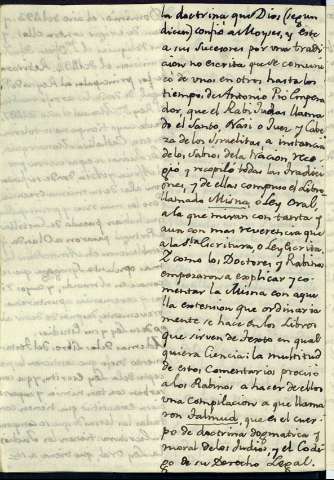 la doctrina que Dios (segun
dicen) confio a Moyses, y este
a sus Sucesores por una tradi-
cion no escrita que se comuni-
có de unos en otros hasta los
tiempos de Antonio Pio Empera-
dor, que el Rabi Judas llama-
do el Santo, Nasi o Juez y Cabe-
za de los Israelitas, a instancia
de los Sabios de la Nacion reco-
gió y recopiló todas las tradicio-
nes, y de ellas compuso el Libro
llamado Misna, o Ley Oral,
a la que miran con tanta y
aun con mas reverencia que
a la Sta. Escritura, o Ley Escrita
como los Doctores y Rabinos
empezaron a explicar y co-
mentar la Misna con aque-
lla extension que ordinaria-
mente se hace en los Libros
que sirven de texto en qual-
quiera Ciencia: la multitud
de estos Comentarios preciso
a los Rabinos a hacer de ellos
una compilacion a que llama-
ron Talmud, que es el cuer-
po de doctrina dogmatica y
moral de los Judios, y el Codi-
go de su Derecho Legal.